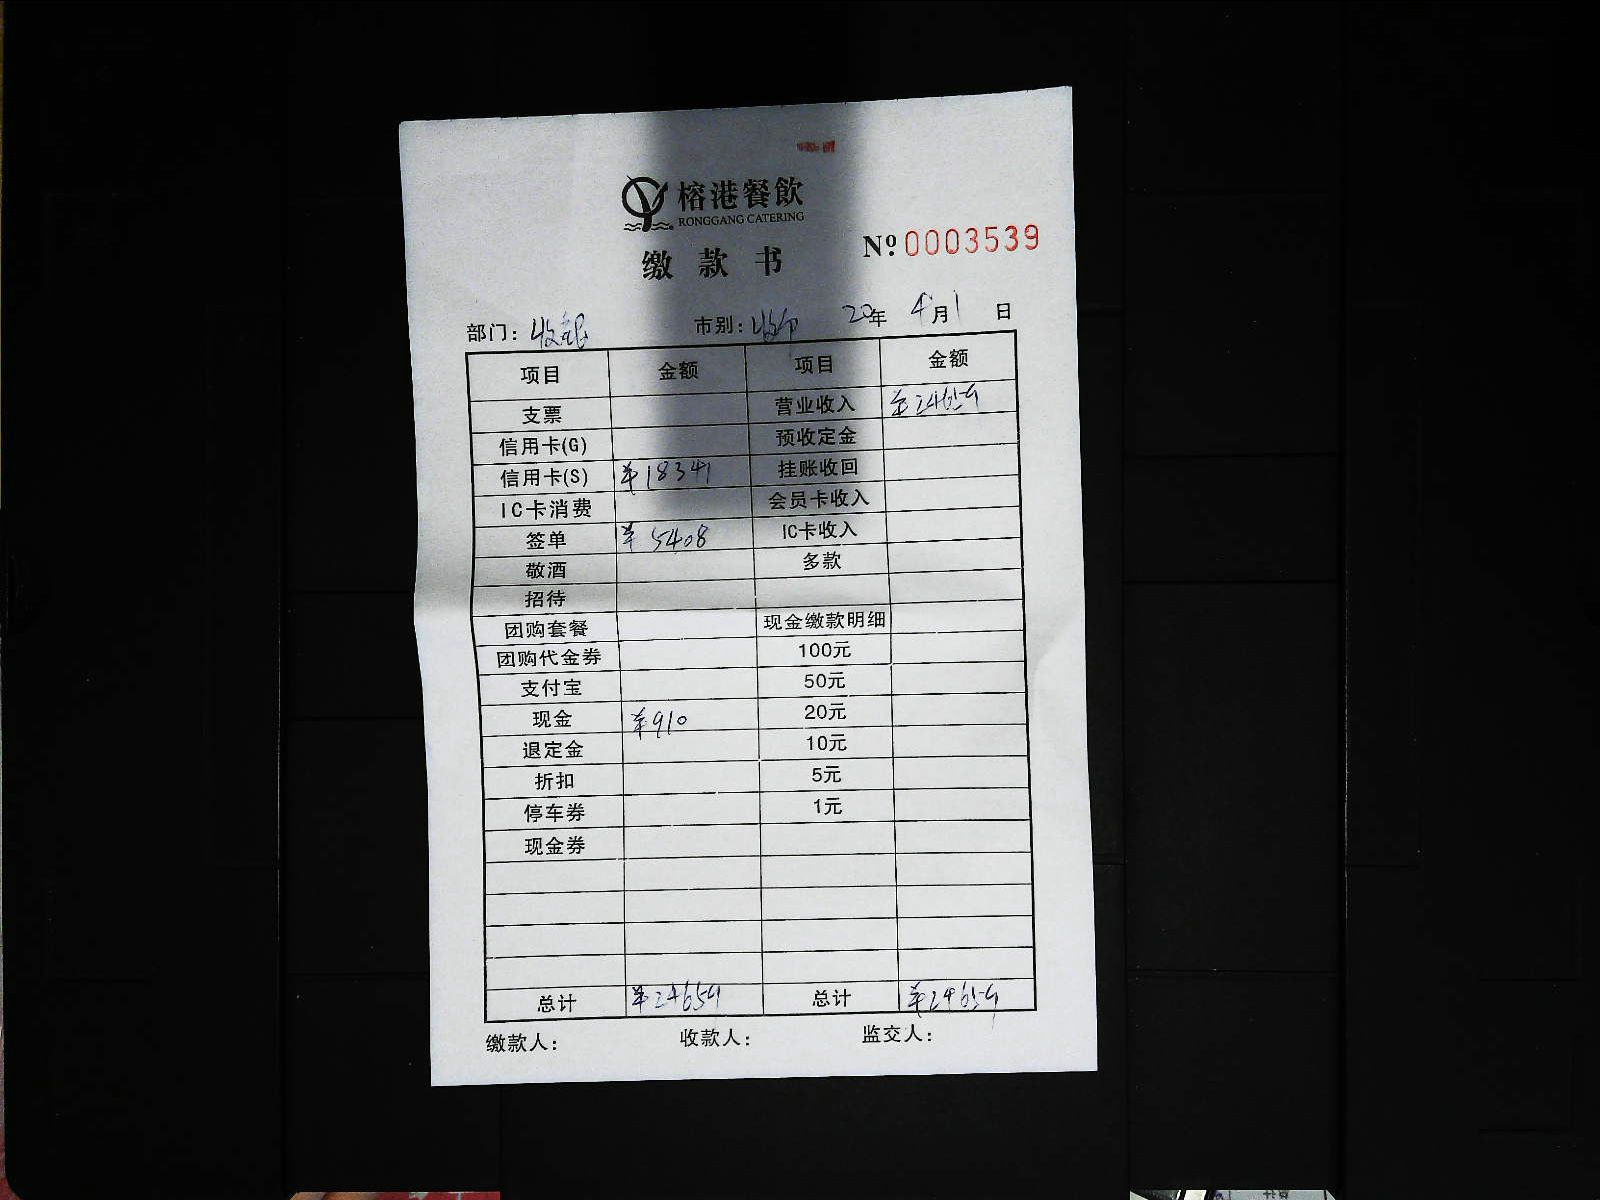 榕港餐飲
RONGGANG CATERING
缴款书
№ 0003539
部门: 收银 市别: 20年 4月1日
项目 金额 项目 金额
支票 营业收入 ¥24659
信用卡(G) 预收定金
信用卡(S) ¥18341 挂账收回
IC卡消费 会员卡收入
签单 ¥5408 IC卡收入
敬酒 多款
招待
团购套餐 现金缴款明细
团购代金券 100元
支付宝 50元
现金 ¥910 20元
退定金 10元
折扣 5元
停车券 1元
现金券
总计 ¥24659 总计 ¥24659
缴款人: 收款人: 监交人: